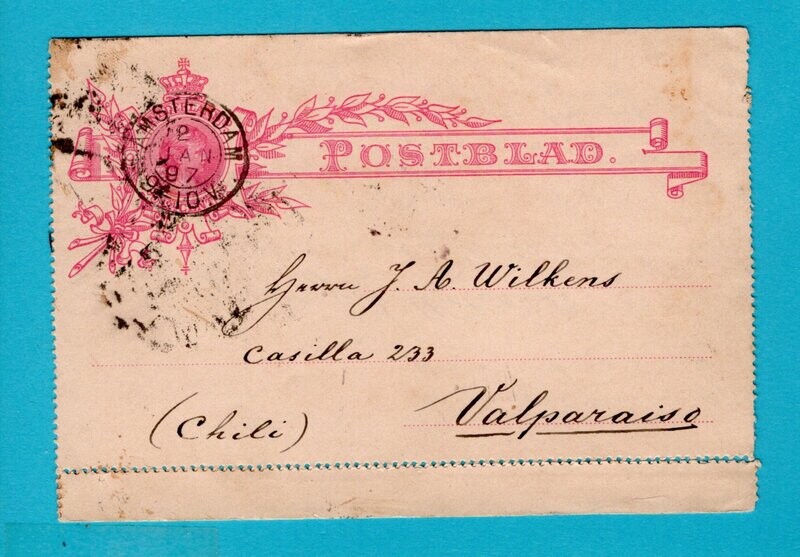 AMSTERDAM
12
JAN
97
9-10V
POSTBLAD.
Herrn J. A. Wilkens
Casilla 233
Valparaiso
(Chili)